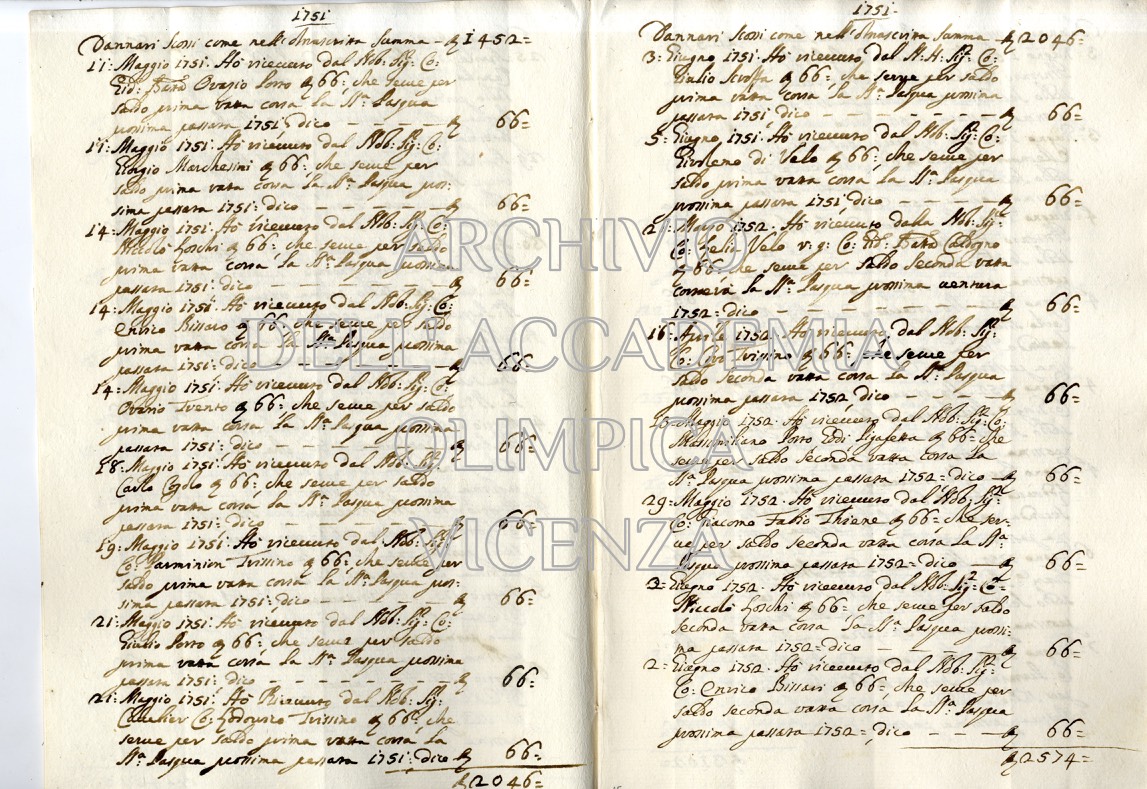 1751
Dannari Scossi come nell'Anascritta Summa - 1452=
11: Maggio 1751. Hò ricevuto dal Nob: Sig: Co:
Orazio Porro 66: che serve per
saldo prima ratta corsa la Sta. Pasqua
prossima passata 1751: dico - - - - - 66=
11: Maggio 1751. Hò ricevuto dal Nob: Sig: Co:
Giorgio Marchesini 66: che serve per
saldo prima ratta corsa la Sta. Pasqua pros:
sima passata 1751: dico - - - - - 66=
14: Maggio 1751. Hò ricevuto dal Nob: Sig: Co:
Niccolò Loschi 66: che serve per saldo
prima ratta corsa la Sta. Pasqua prossima
passata 1751: dico - - - - - 66=
14: Maggio 1751. Hò ricevuto dal Nob: Sig: Co:
Enrico Bissaro 66: che serve per saldo
prima ratta corsa la Sta. Pasqua prossima
passata 1751: dico - - - - - 66=
14: Maggio 1751. Hò ricevuto dal Nob: Sig: Co:
Ovario Trento 66: che serve per saldo
prima ratta corsa la Sta. Pasqua prossima
passata 1751: dico - - - - - 66=
18: Maggio 1751. Hò ricevuto dal Nob: Sig:
Carlo 66: che serve per saldo
prima ratta corsa la Sta. Pasqua prossima
passata 1751: dico - - - - - 66=
19: Maggio 1751. Hò ricevuto dal Nob: Sig:
Co: Parminion Trissino 66: che serve per
saldo prima ratta corsa la Sta. Pasqua pros:
sima passata 1751: dico - - - - - 66=
21: Maggio 1751. Hò ricevuto dal Nob: Sig: Co:
Giulio Porro 66: che serve per saldo
prima ratta corsa la Sta. Pasqua prossima
passata 1751: dico - - - - - 66=
21: Maggio 1751. Hò Ricevuto dal Nob: Sig:
Cavalier Co: Lodovico Trissino 66: che
serve per saldo prima ratta corsa la
Sta. Pasqua prossima passata 1751: dico 66=
2046=
1751
Dannari Scossi come nell'Anascritta Summa - 2046=
3: Giugno 1751. Hò ricevuto dal N: H: Sig: Co:
Giulio Scroffa 66: che serve per saldo
prima ratta corsa la Sta. Pasqua prossima
passata 1751 dico - - - - - 66=
5: Giugno 1751. Hò ricevuto dal Nob: Sig: Co:
Girolemo di Velo 66: che serve per
saldo prima ratta corsa la Sta. Pasqua
prossima passata 1751 dico - - - - - 66=
2: Marzo 1752. Hò ricevuto dalla Nob: Sig:
Co: Velo v: q: Co: Caldogno
66: che serve per saldo seconda ratta
correva la Sta. Pasqua prossima ventura
1752= dico - - - - - 66=
16: Aprile 1752. Hò ricevuto dal Nob: Sig:
Co: Trissino 66: che serve per
saldo seconda ratta corsa la Sta. Pasqua
prossima passata 1752, dico - - - - - 66=
Maggio 1752. Hò ricevuto dal Nob: Sig: Co:
Massimiliano Porto Pigafetta 66: che
serve per saldo seconda ratta corsa la
Sta. Pasqua prossima passata 1752= dico - 66=
29: Maggio 1752. Hò ricevuto dal Nob: Sig:
Co: Giacomo Fabio Thiene 66: che ser:
ve per saldo seconda ratta corsa la Sta.
Pasqua prossima passata 1752= dico - - 66=
2: Giugno 1752. Hò ricevuto dal Nob: Sig: Co:
Niccolò Loschi 66: che serve per saldo
seconda ratta corsa la Sta. Pasqua prossi:
ma passata 1752= dico - - - - - 66=
2: Giugno 1752. Hò ricevuto dal Nob: Sig:
Co: Enrico Bissari 66: che serve per
saldo seconda ratta corsa la Sta. Pasqua
prossima passata 1752= dico - - - - 66=
2574=
ARCHIVIO
DELL'ACCADEMIA
OLIMPICA
VICENZA